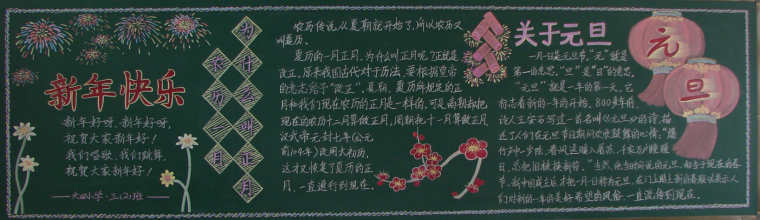 新年快乐
新年好呀,新年好呀,
祝贺大家新年好!
我们唱歌,我们跳舞,
祝贺大家新年好!
为什么叫正月
农历一月
农历传说从夏朝就开始了,所以农历又
叫夏历。
夏历的一月正月。为什么叫正月呢?正就是
改正,原来我们古代对于历法,要根据皇帝
的意志给予“改正”。夏朝,夏历所规定的正
月和我们现在农历的正月是一样的,可是商朝却把
现在的农历十二月算做正月,周朝把十一月算做正月
汉武帝元封七年(公元
前104年)改用太初历,
这才又恢复了夏历的正
月,一直通行到现在。
关于元旦
一月一日是元旦节,“元”就是
第一的意思,“旦”是“日”的意思。
“元旦”就是一年的第一天,它
标志着新的一年的开始。800多年前,
诗人王安石写过一首名叫《元旦》的诗,描
述了人们在元旦节日期间欢欣鼓舞的心情:“爆
竹声中一岁除,春风送暖入屠苏。千家万户曈曈
日,总把旧桃换新符。”当然,他当时所说的元旦,相当于现在的春
节。新中国成立后才把一月一日称为元旦,
人们对新的一年的美好希望的风俗,一直流传到现在。
元
旦